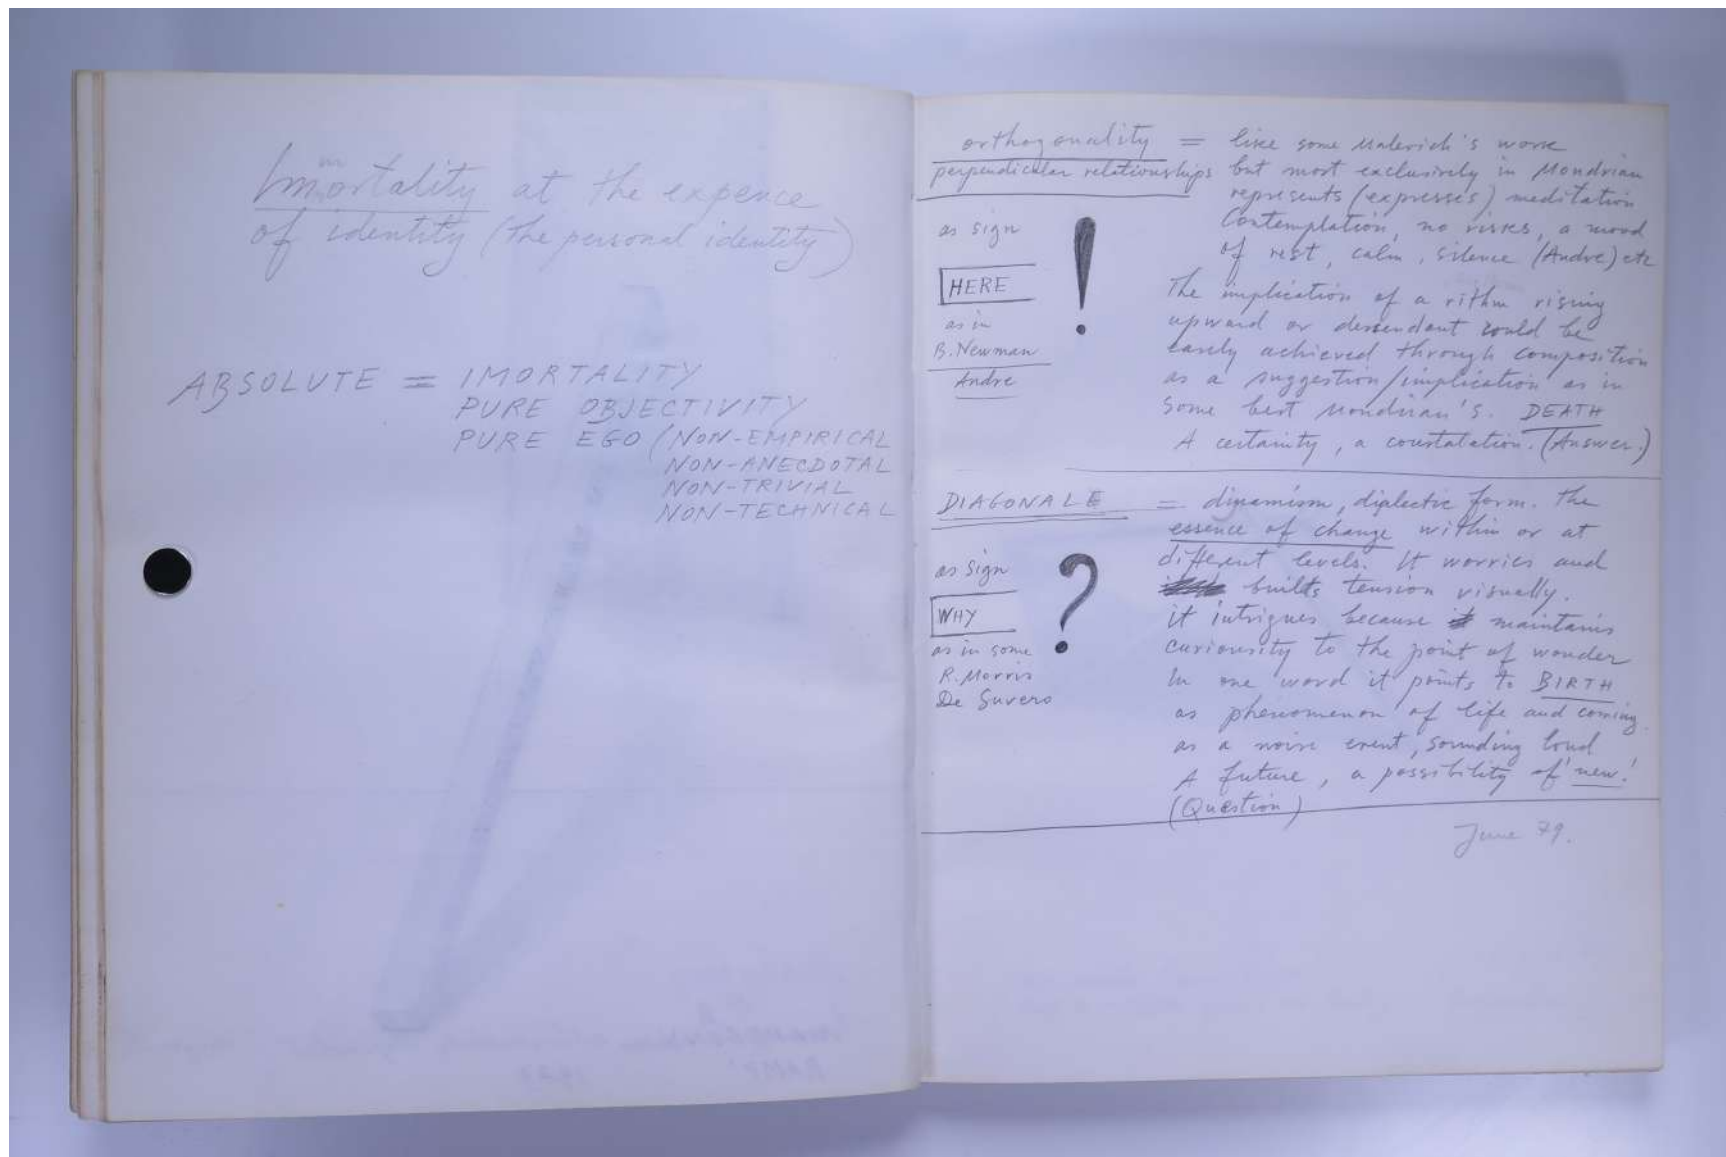 Immortality at the expence
of identity (the personal identity)
ABSOLUTE = IMORTALITY
PURE OBJECTIVITY
PURE EGO (NON-EMPIRICAL
NON-ANECDOTAL
NON-TRIVIAL
NON-TECHNICAL
orthogonality = like some Malevich's work
perpendicular relationships but most exclusively in Mondrian
represents (expresses) meditation
Contemplation, no risks, a mood
of rest, calm, silence (Andre) etc
as sign !
HERE
as in
B. Newman
Andre
The implication of a rithm rising
upward or descendant could be
easely achieved through composition
as a suggestion/implication as in
some best Mondrian's. DEATH
A certainity, a constatation. (Answer.)
DIAGONALE = dinamism, dialectic form. The
essence of change within or at
different levels. It worries and
builds tension visually.
it intrigues because maintains
curiousity to the point of wonder
In one word it points to BIRTH
as phenomenon of life and coming
as a noise event, sounding loud
A future, a possibility of 'new!
(Question)
as sign ?
WHY
as in some
R. Morris
De Suvero
June 79.